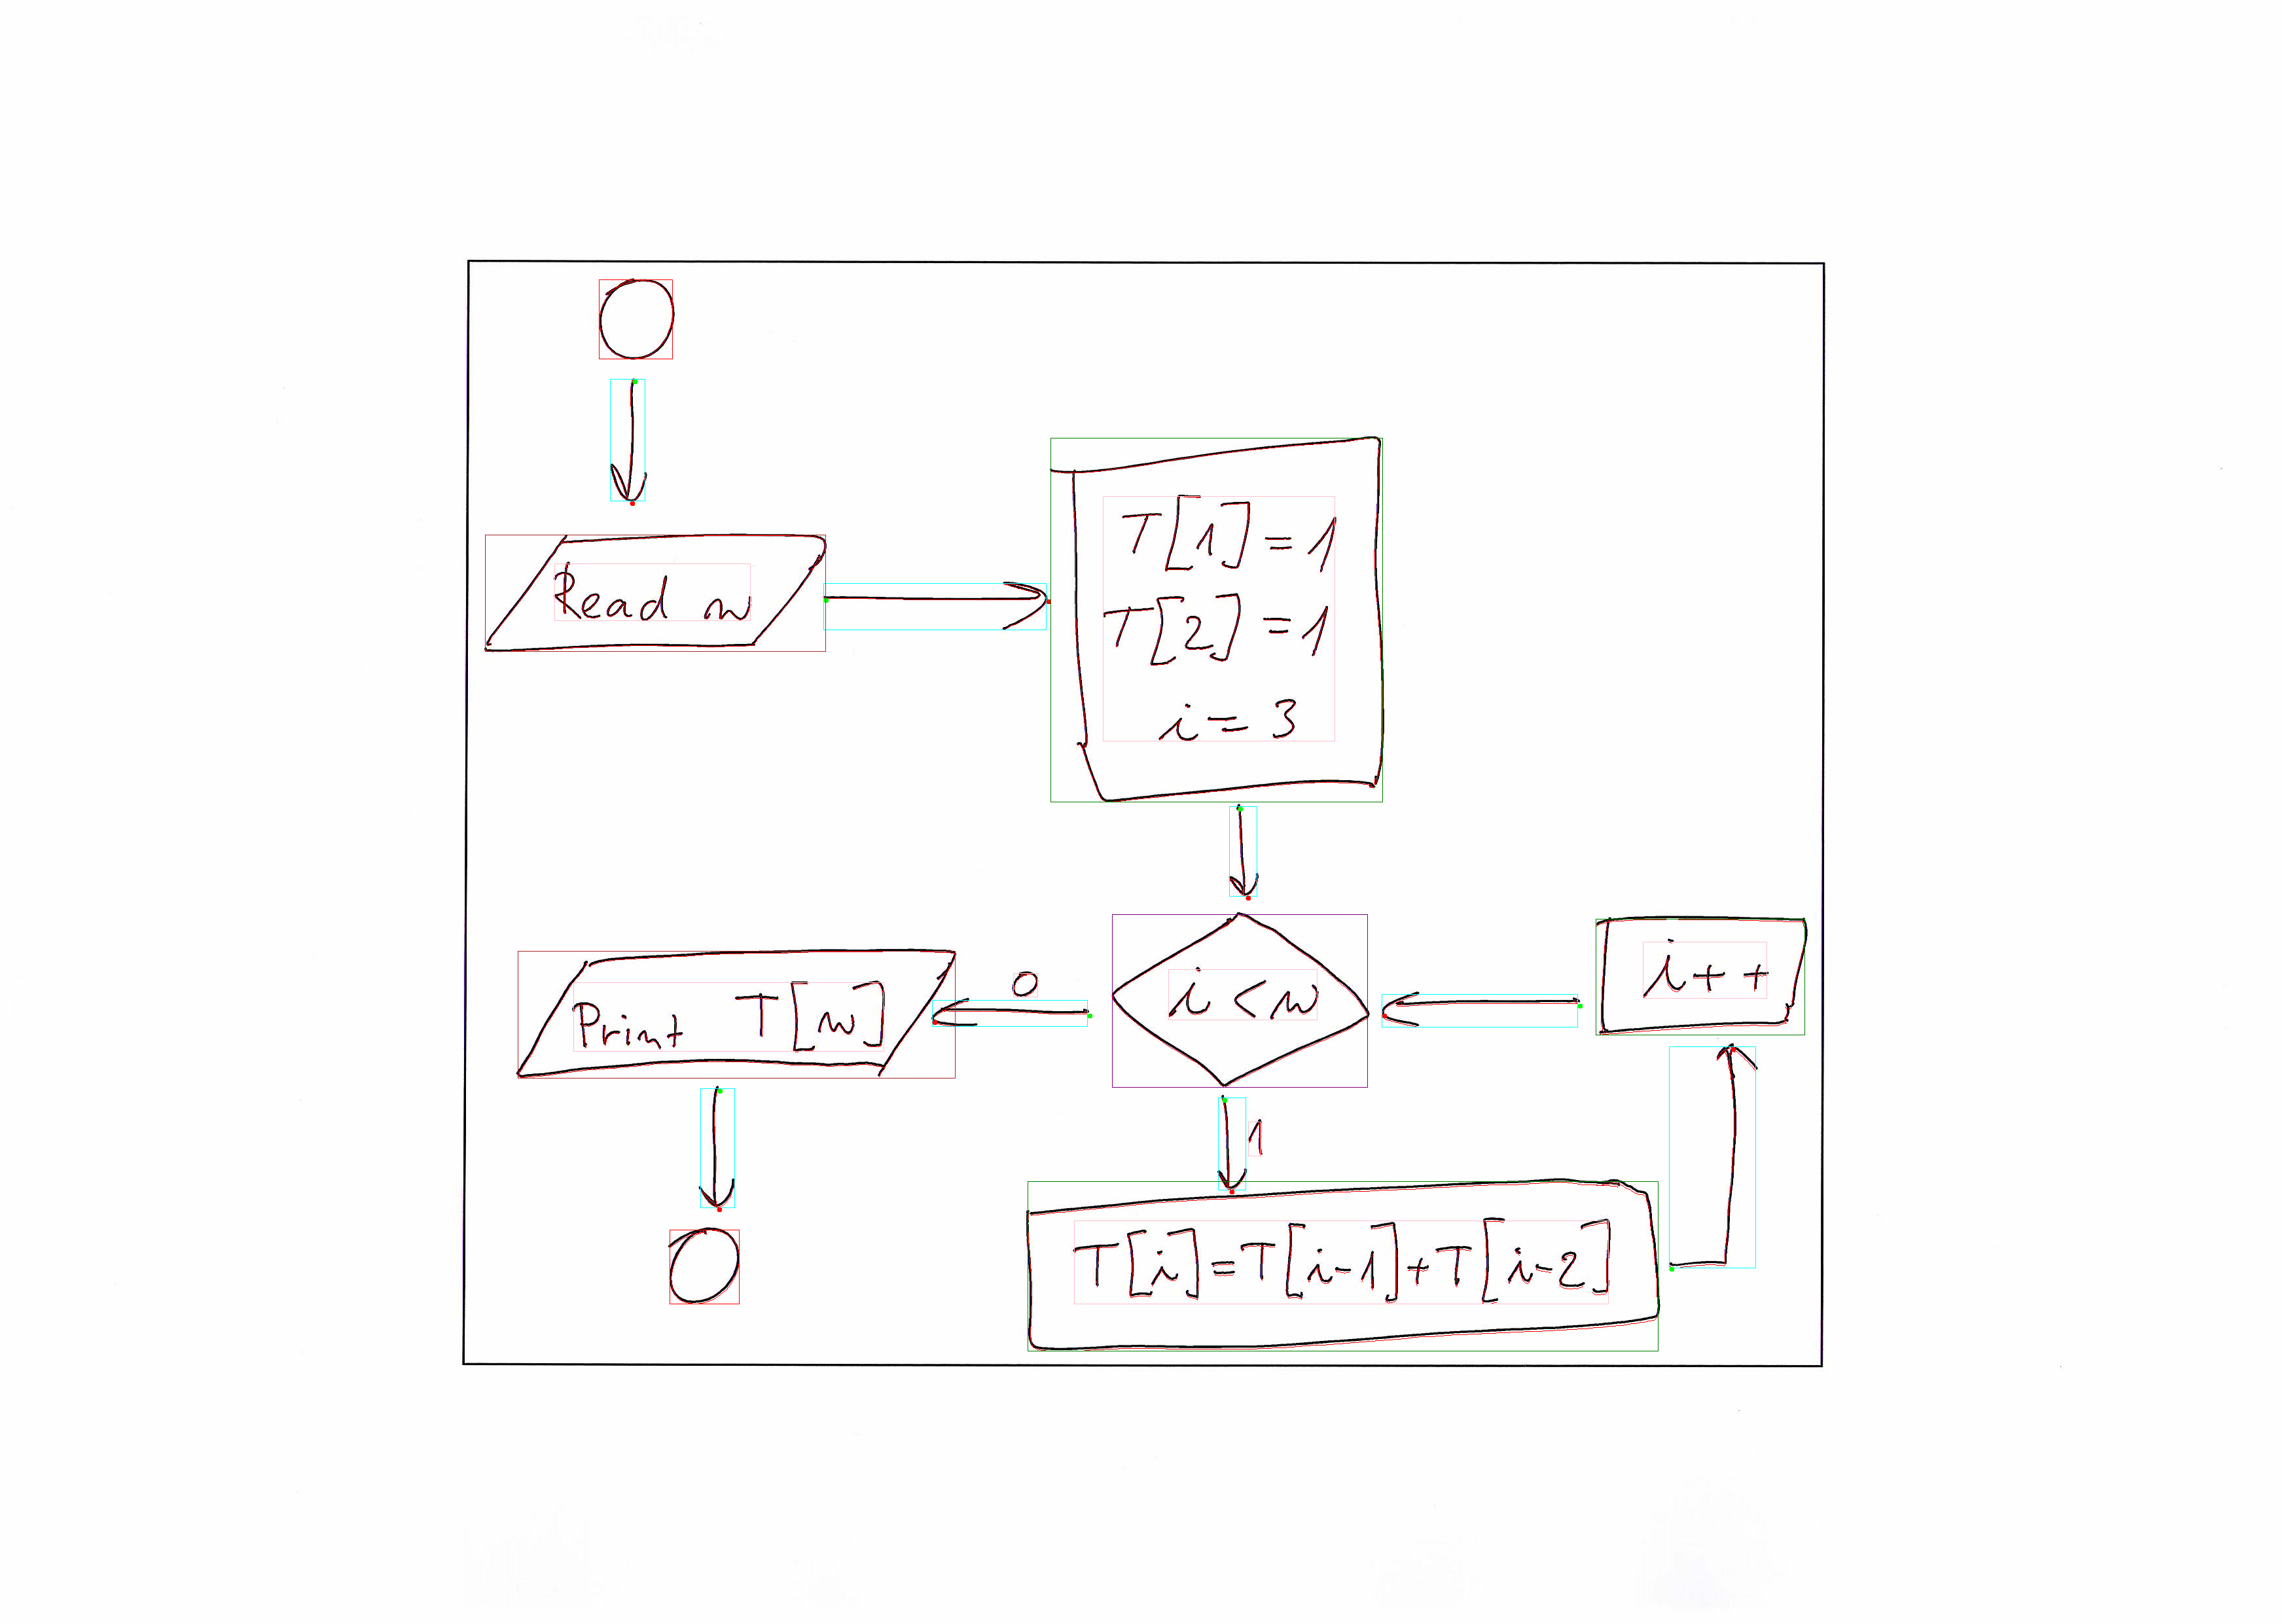 Read n
T[1]=1
T[2]=1
i=3
i++
0
i<n
Print T[n]
1
T[i]=T[i-1]+T[i-2]